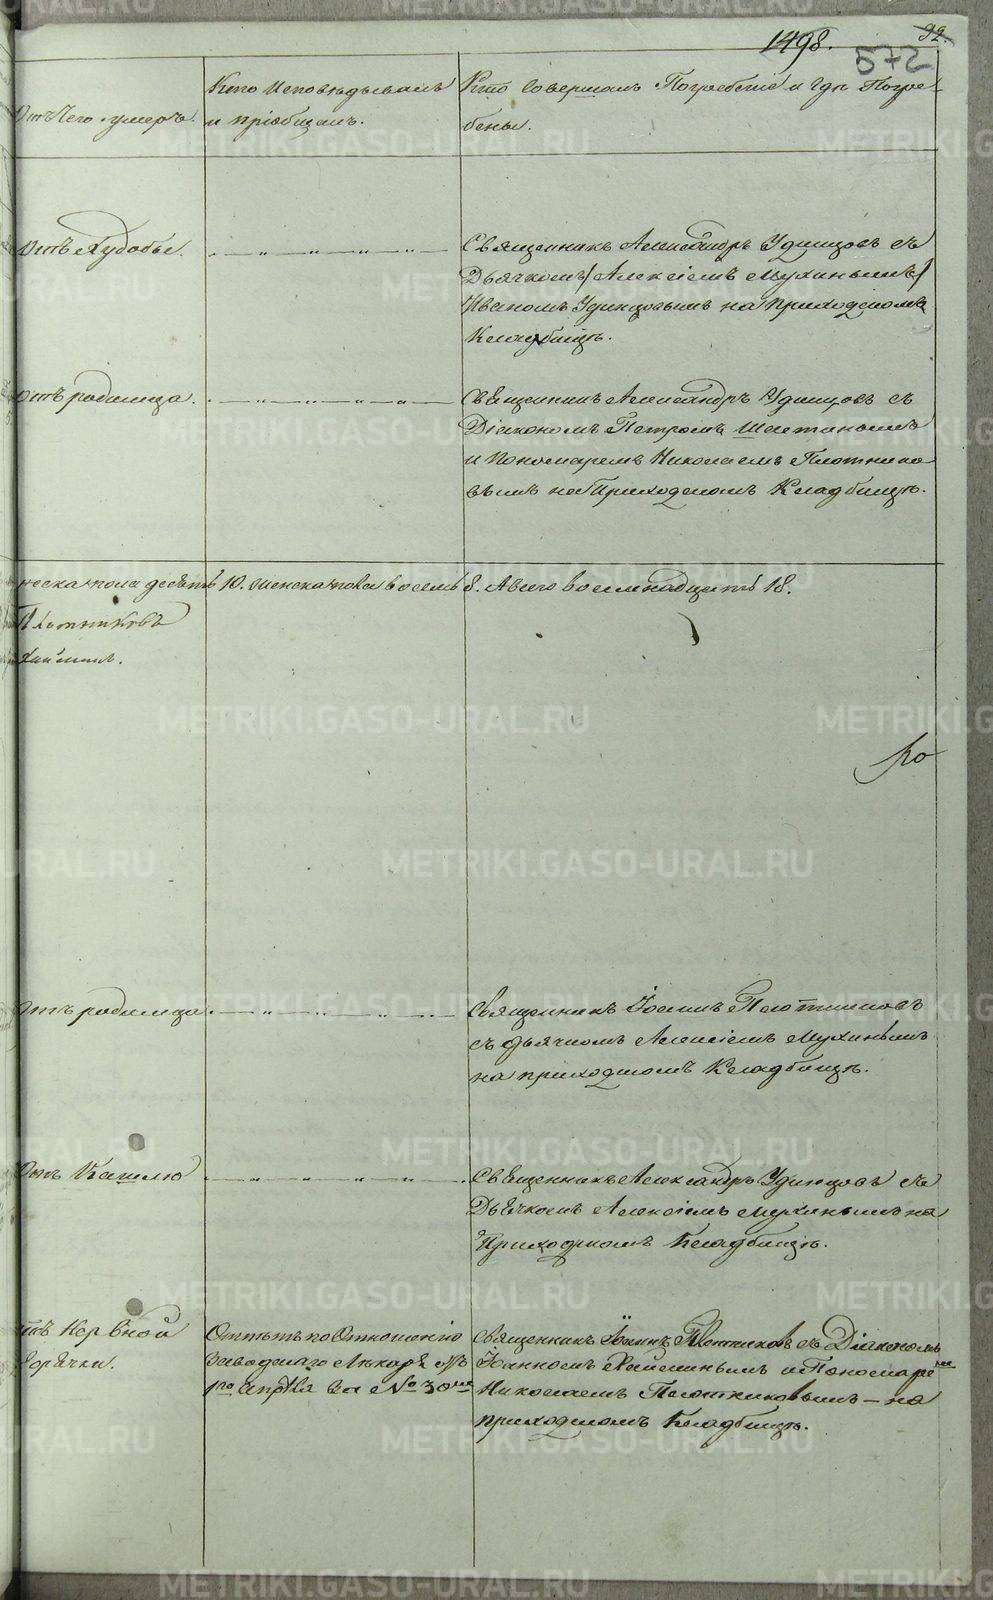 1498.
92.
572
Отъ Чего умеръ.
Кто Исповѣдывалъ
и пріобщалъ.
Кто Совершалъ Погребеніе и Гдѣ Погре-
бены.
Отъ Худобы.
Священникъ Александръ Удинцовъ съ
Дьячкомъ/Алексіемъ Мухинымъ/
Иваномъ Удинцовымъ на Приходскомъ
Кладбищѣ.
Отъ родимца.
Священникъ Александръ Удинцовъ съ
Діакономъ Петромъ
и Пономаремъ Николаемъ Плотнико-
вымъ на Приходскомъ Кладбищѣ.
пола десять 10. Женска пола восемь 8. А всего восемнадцать 18.
Плотниковъ
По
Отъ родимца.
Священникъ Іоаннъ Плотниковъ
съ дьячкомъ Алексіемъ Мухинымъ
на приходскомъ Кладбищѣ.
Отъ Кашлю
Священникъ Александръ Удинцовъ съ
Дьячкомъ Алексіемъ Мухинымъ на
Приходскомъ Кладбищѣ.
Нервной
Горячки.
Отпѣтъ по Отношенію
Заводскаго Лекаря отъ
1го Апрѣля за № 30мъ
Священникъ Іоаннъ Плотниковъ съ Діакономъ
Іоанномъ и Пономаремъ
Николаемъ Плотниковымъ – на
приходскомъ Кладбищѣ.
METRIKI.GASO-URAL.RU